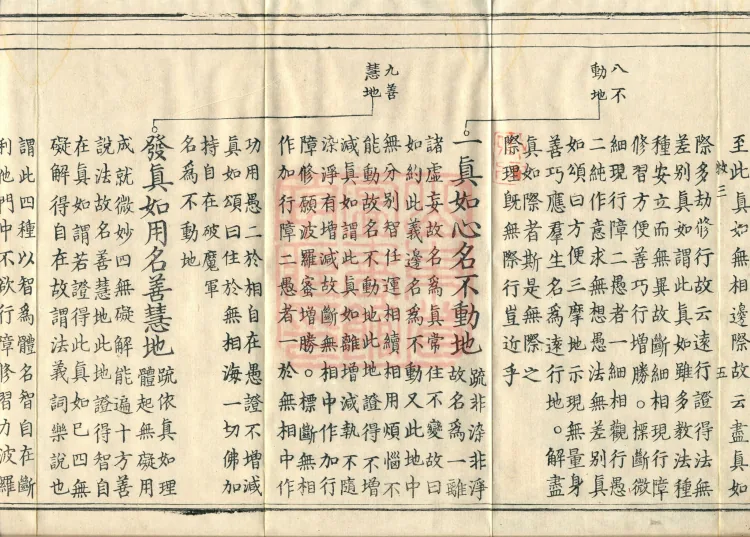 至此真如無相邊際故云盡真如
三 五
際多劫修行故云遠行證得法無
差別真如謂此真如雖多教法種
種安立而無異故斷細相現行障
修習方便善巧行增勝。標斷微
細現行障二愚者一細相觀行愚
二純作意求無想愚法無差別真
如頌曰方便三摩地示現無量身
善巧應羣生名爲遠行地。解盡
真如際者斯是無際之
際理既無際行豈近乎
八不
動地
一真如心名不動地
疏非染非淨
故名爲一離
諸虛妄故名爲真常住不變故曰
如約此義邊名爲不動又此地中
無分別智任運相續相用煩惱不
能動故名不動地此地證得不增
減真如謂此真如離增減執不隨
染淨有增減故斷無相中作加行
障修願波羅蜜增勝。標斷無相
作加行障二愚者一於無相中作
功用愚二於相自在愚證不增減
真如頌曰住於無相海一切佛加
持自在破魔軍
名爲不動地
九善
慧地
發真如用名善慧地
疏依真如理
體起無礙用
成就微妙四無礙解能遍十方善
說法故名善慧地此地證得智自
在真如謂若證得此真如已四無
礙解得自在故謂法義詞樂說也
謂此四種以智爲體名智自在斷
利他門中不欲行障修習力波羅